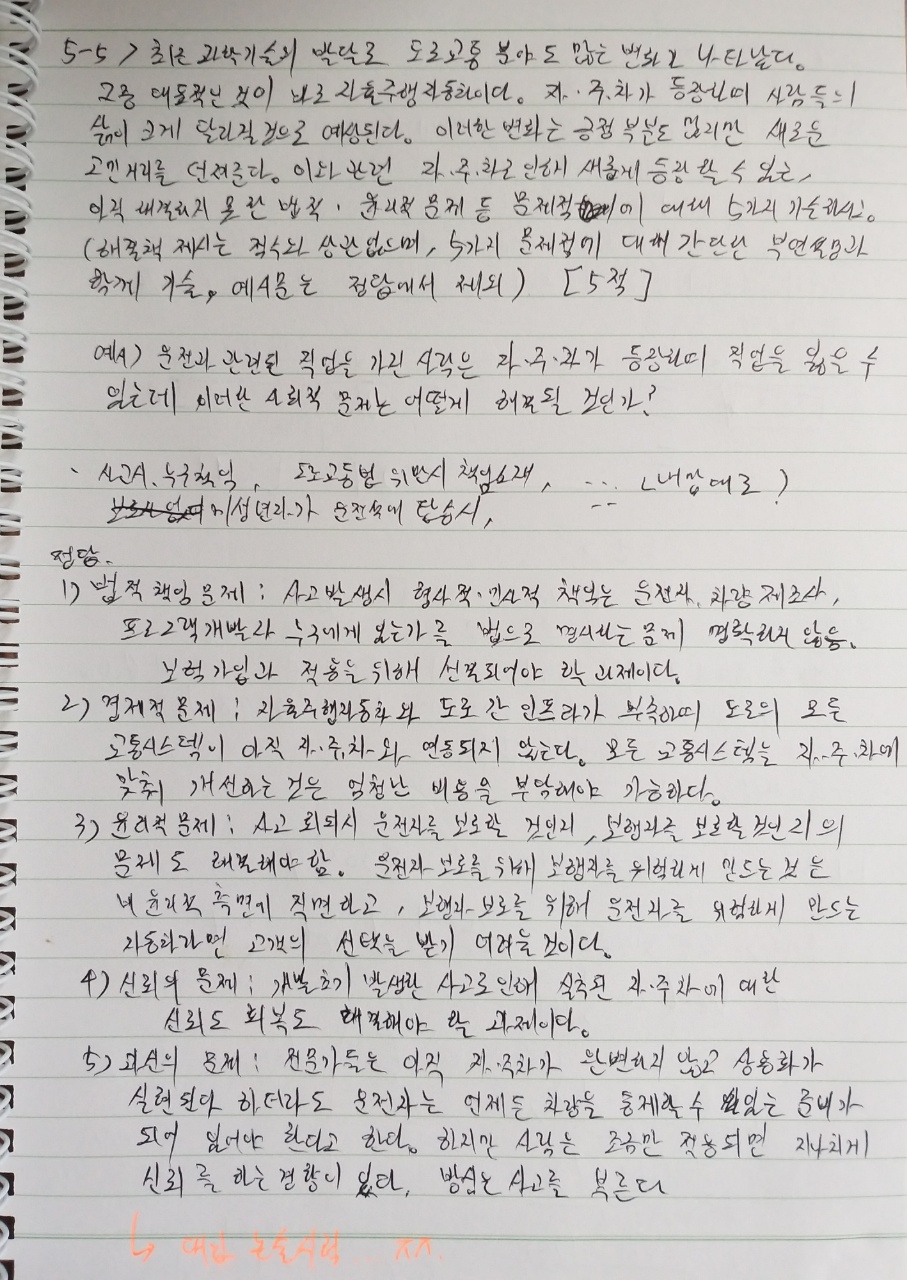 5-5 > 최근 과학기술의 발달로 도로교통 분야도 많은 변화가 나타났다.
그중 대표적인 것이 바로 자율주행자동차이다. 자·주·차가 등장하며 사람들의
삶이 크게 달라질것으로 예상된다. 이러한 변화는 긍정 부분도 있지만 새로운
고민거리를 던져준다. 이와 관련 자·주·차로 인해 새롭게 등장 할 수 있는,
아직 해결되지 못한 법적·윤리적 문제 등 문제점에 대해 5가지 기술하시오.
(해결책 제시는 점수와 상관없으며, 5가지 문제점에 대해 간단한 부연설명과
함께 기술, 예시문은 정답에서 제외) [5점]
예시) 운전과 관련된 직업을 가진 사람은 자·주·차가 등장하며 직업을 잃을 수
있는데 이러한 사회적 문제는 어떻게 해결될 것인가?
사고시 누구책임, 도로교통법 위반시 책임소재, ... (내맘대로?)
미성년자가 운전석에 탑승시,
정답.
1) 법적 책임 문제 : 사고발생시 형사적·민사적 책임는 운전자, 차량 제조사,
프로그램개발자 누구에게 있는가를 법으로 명시하는 문제 명확하지 않음.
보험가입과 적용을 위해 선결되어야 할 과제이다.
2) 경제적 문제 : 자율주행자동차와 도로 간 인프라가 부족하며 도로의 모든
교통시스템이 아직 자·주·차와 연동되지 않는다. 모든 교통시스템을 자·주·차에
맞춰 개선하는 것은 엄청난 비용을 부담해야 가능하다.
3) 윤리적 문제 : 사고 회피시 운전자를 보호할 것인지, 보행자를 보호할것인지의
문제도 해결해야 함. 운전자 보호를 위해 보행자를 위험하게 만드는 것은
비윤리적 측면에 직면하고, 보행자 보호를 위해 운전자를 위험하게 만드는
자동차라면 고객의 선택을 받기 어려울것이다.
4) 신뢰의 문제 : 개발초기 발생한 사고로 인해 실추된 자·주·차에 대한
신뢰도 회복도 해결해야 할 과제이다.
5) 과신의 문제 : 전문가들은 아직 자·주차가 완벽하지 않고 상용화가
실현된다 하더라도 운전자는 언제든 차량을 통제할 수 있는 준비가
되어 있어야 한다고 한다. 하지만 사람은 조금만 적응되면 지나치게
신뢰를 하는 경향이 있다. 방심은 사고를 부른다
↳ 대감 논술시험... ㅠㅠ.